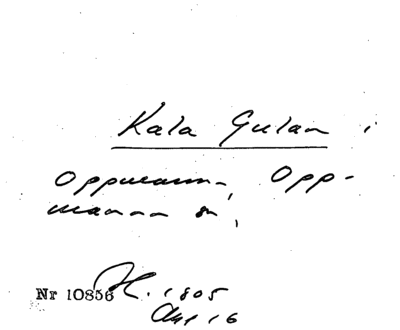 Kala Gulan i
Oppmanna, Opp-
manna sn,
Nr 10856 H. 1805